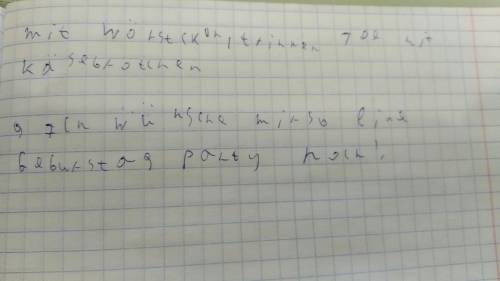 mit Würstchen, trinken Tee mit
käsebrotchen
Ich wünsche mir so eine
Geburstag party noch!